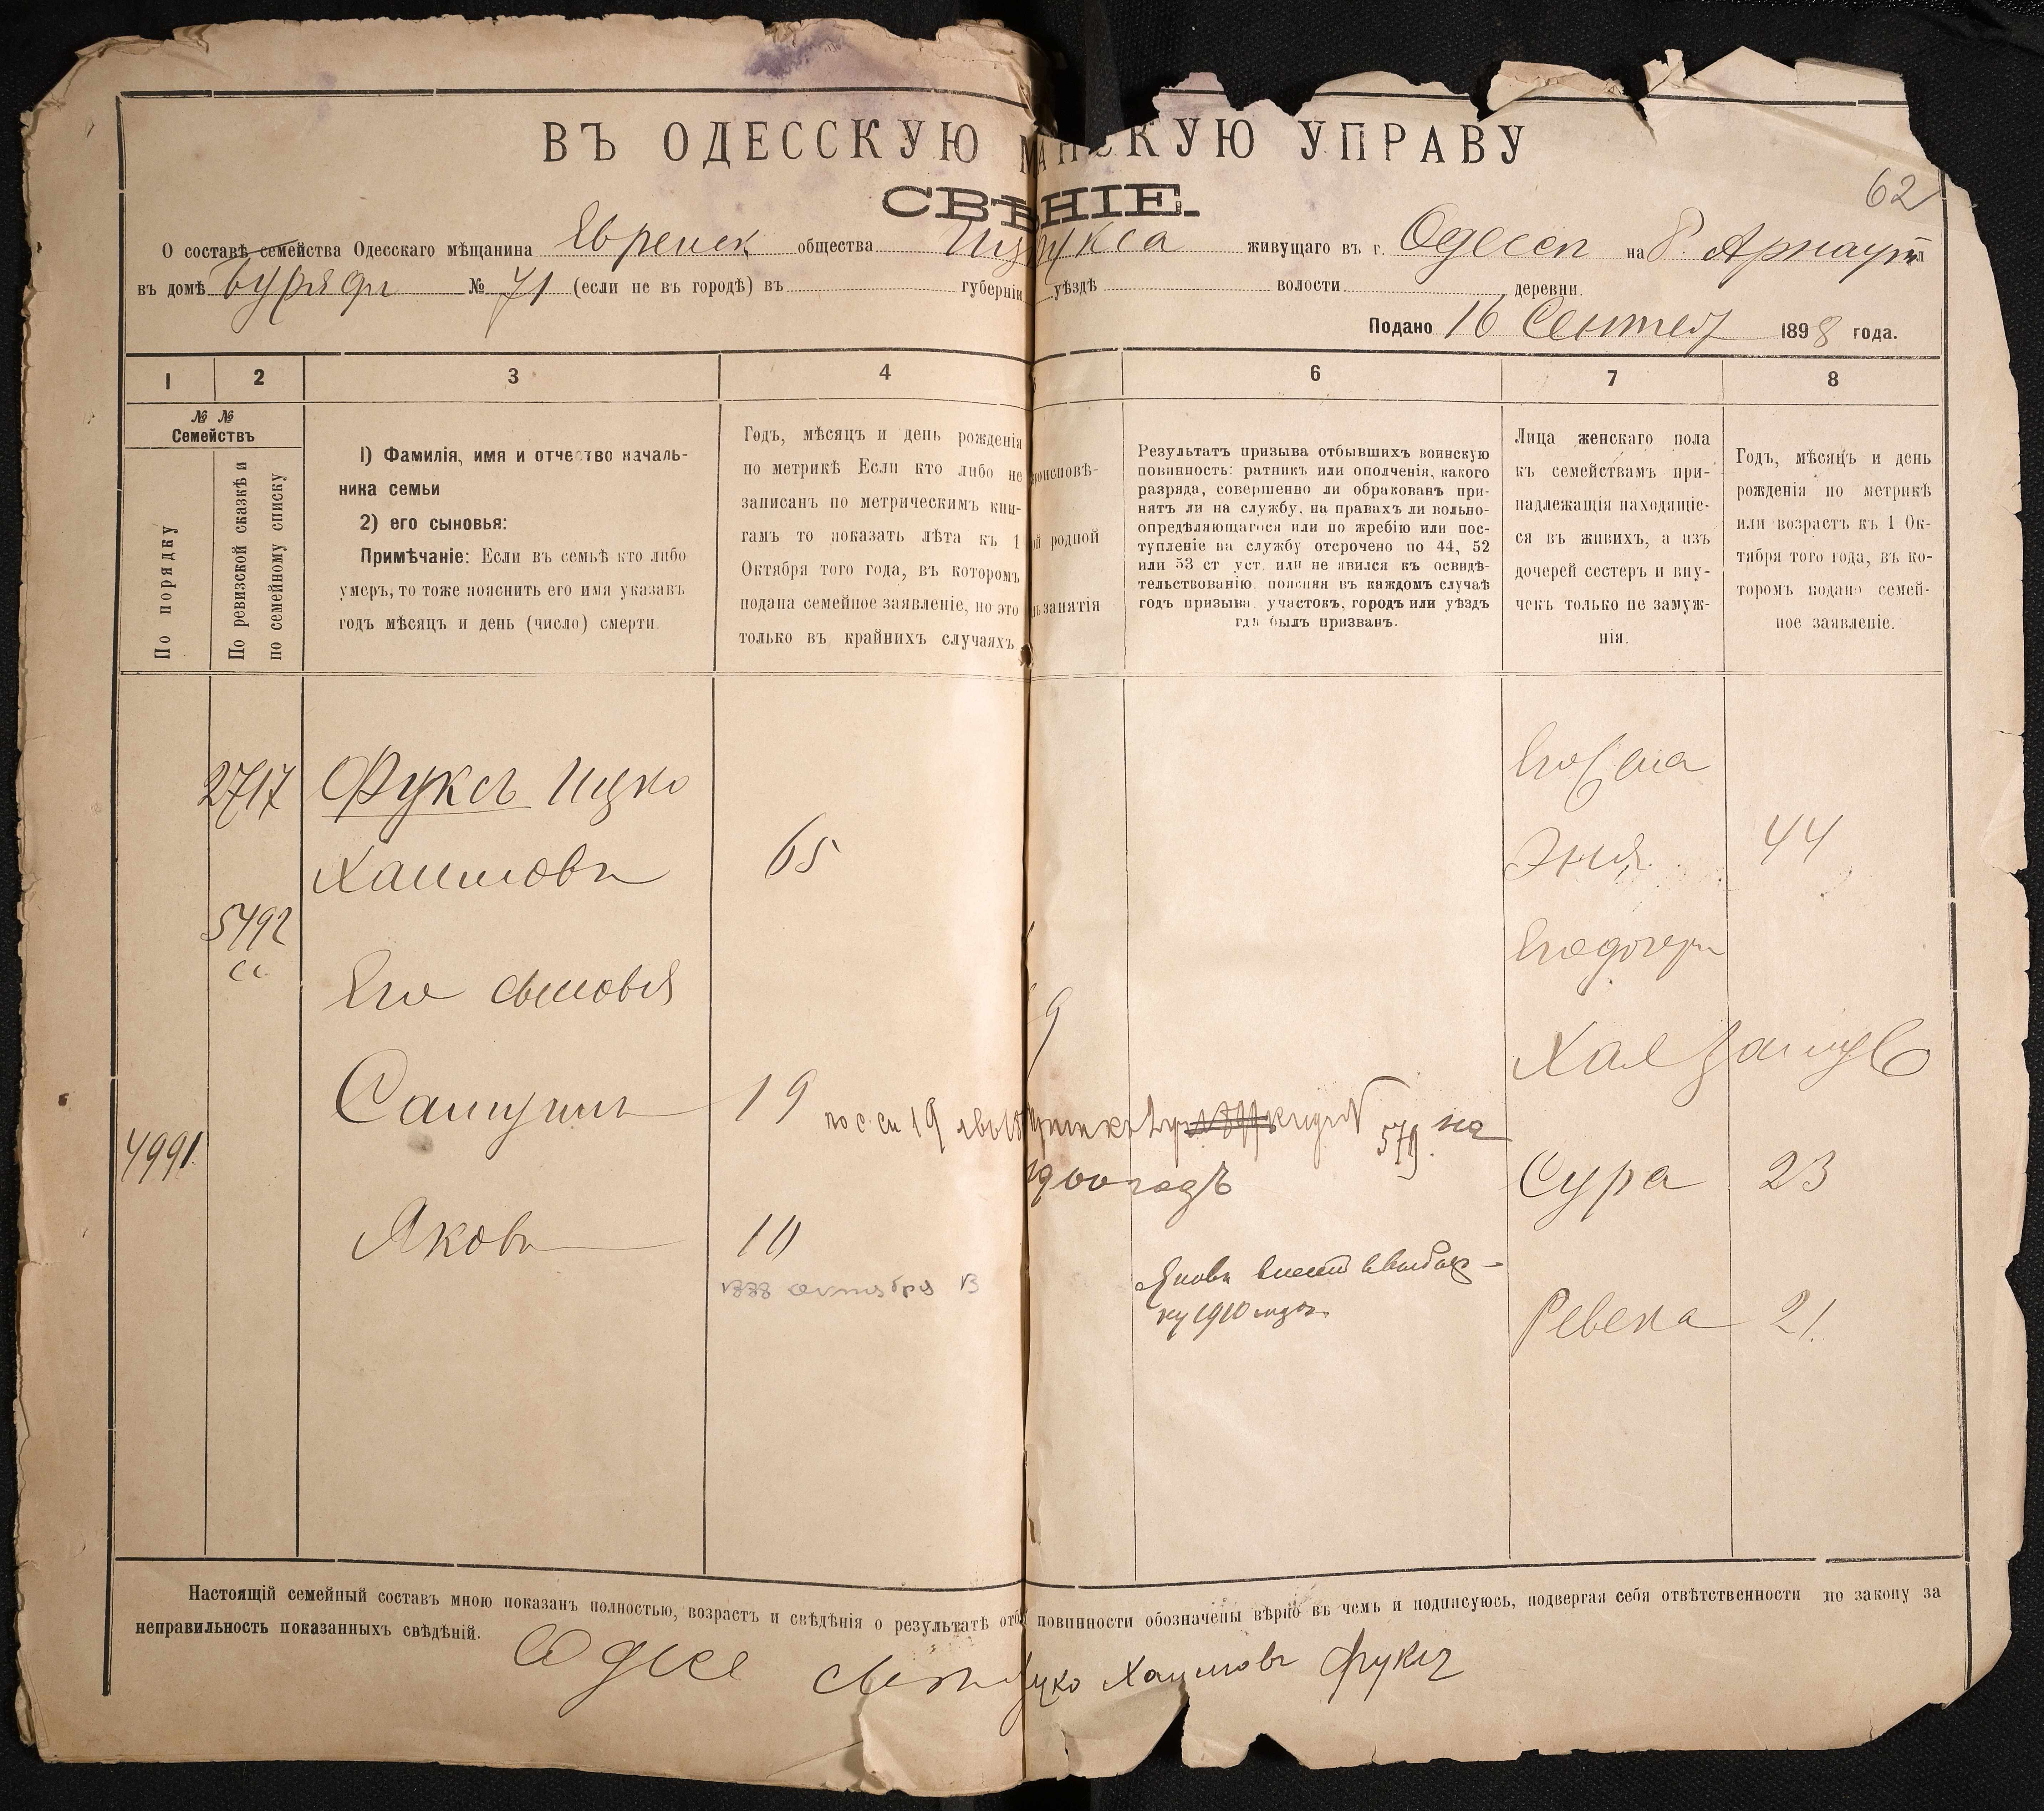 ВЪ ОДЕССКУЮ УПРАВУ
62
О составѣ семейства Одесскаго мѣщанина Еврейск общества живущаго въ г. Одессѣ на Б. Арнаут
въ домѣ № 71 (если не въ городѣ) въ губерніи уѣздѣ волости деревни
Подано 16 Сентяб 1898 года.
1 2 3 4 6 7 8
№ № Семействъ
По порядку
По ревизской сказкѣ и
по семейному списку
1) Фамилія, имя и отчество началь-
ника семьи
2) его сыновья:
Примѣчаніе: Если въ семьѣ кто либо
умеръ, то тоже пояснить его имя указавъ
годъ мѣсяцъ и день (число) смерти.
Годъ, мѣсяцъ и день рожденія
по метрикѣ Если кто либо не
записанъ по метрическимъ кни-
гамъ то показать лѣта къ 1
Октября того года, въ которомъ
подана семейное заявленіе, но это
только въ крайнихъ случаяхъ
роисповѣ-
родной
занятія
Результатъ призыва отбывшихъ воинскую
повинность: ратникъ или ополченія, какого
разряда, совершенно ли обракованъ при-
нятъ ли на службу, на правахъ ли вольно-
опредѣляющагося или по жребію или пос-
тупленіе на службу отсрочено по 44, 52
или 53 ст уст. или не явился къ освидѣ-
тельствованію. поясняя въ каждомъ случаѣ
годъ призыва. участокъ, городъ или уѣздъ
гдѣ былъ призванъ.
Лица женскаго пола
къ семействамъ при-
надлежащія находящіе-
ся въ живихъ, а изъ
дочерей сестеръ и вну-
чекъ только не замуж-
нія.
Годъ, мѣсяцъ и день
рожденія по метрикѣ
или возрастъ къ 1 Ок-
тября того года, въ ко-
торомъ подано семей-
ное заявленіе.
2717 Фуксъ Ицко
Хаимовъ 65
5492
сс.
Его сыновья
Самуилъ 19 по с. сп 19
579 на
1900 годъ
4991
Яковъ 10
октября
Яковъ
ку 1910 года
Его жена
Эня 44
Его дочери
Хая замуж
Сура 23
Ревека 21.
Настоящій семейный составъ мною показанъ полностью, возрастъ и свѣдѣнія о результатѣ отб повинности обозначены вѣрно въ чемъ и подписуюсь, подвергая себя отвѣтственности по закону за
неправильность показанныхъ свѣдѣній.
Одесс Ицко Хаимовъ Фуксъ